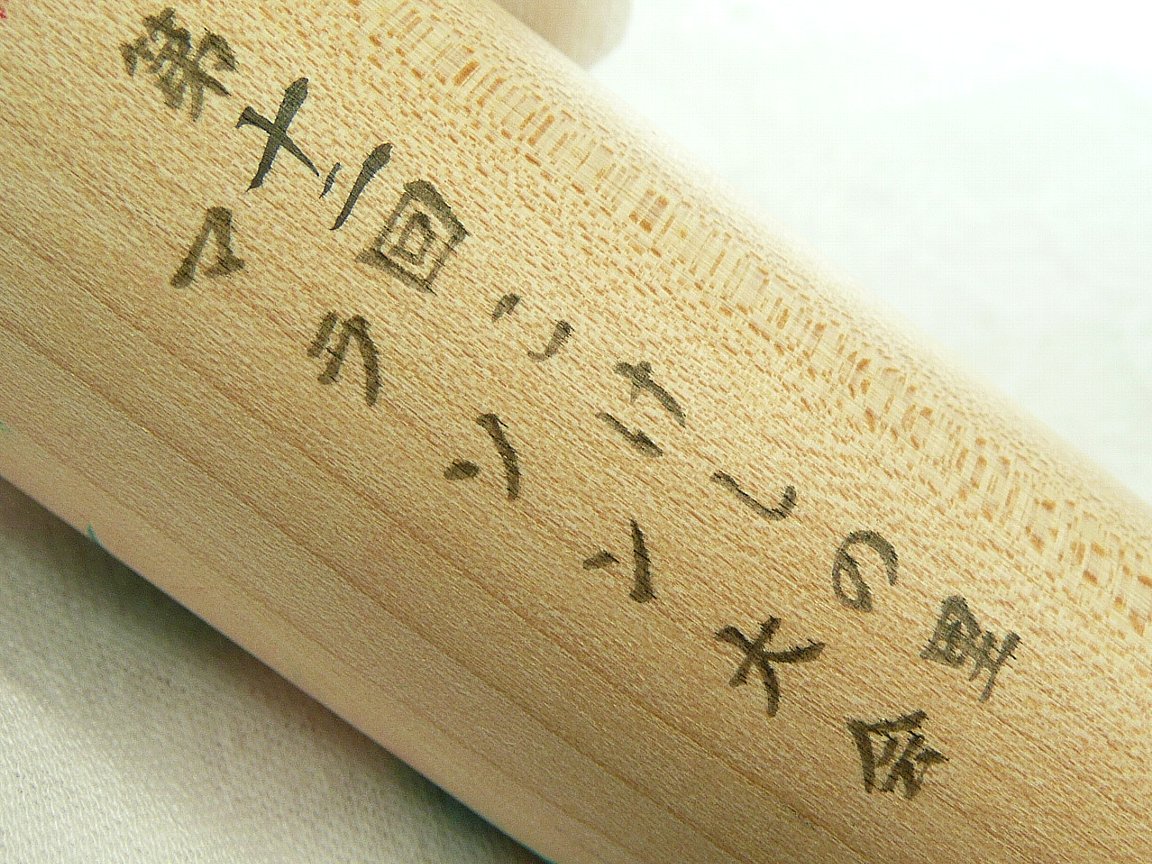 第十二回こけしの里
マラソン大会